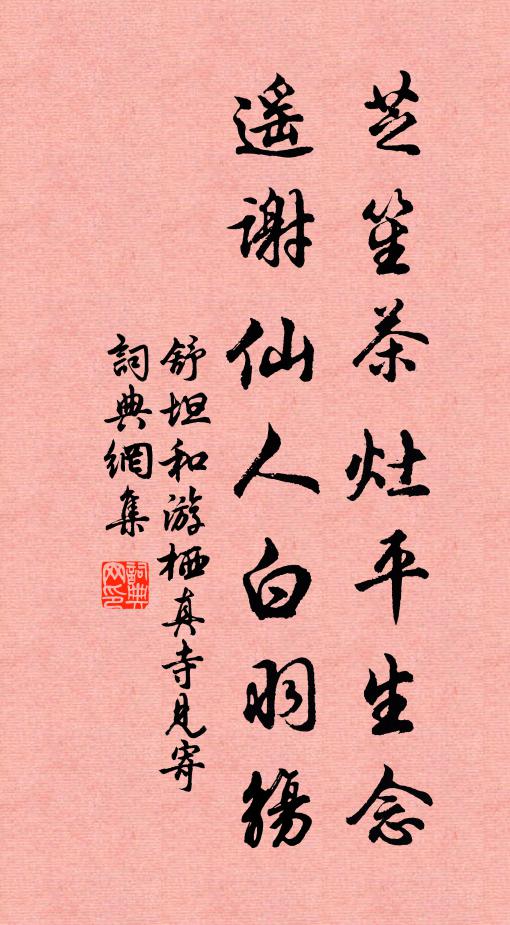 芝笙茶灶平生念
遥謝仙人白羽觴
舒坦和游栖真寺見寄
詞典網集
詞典網印